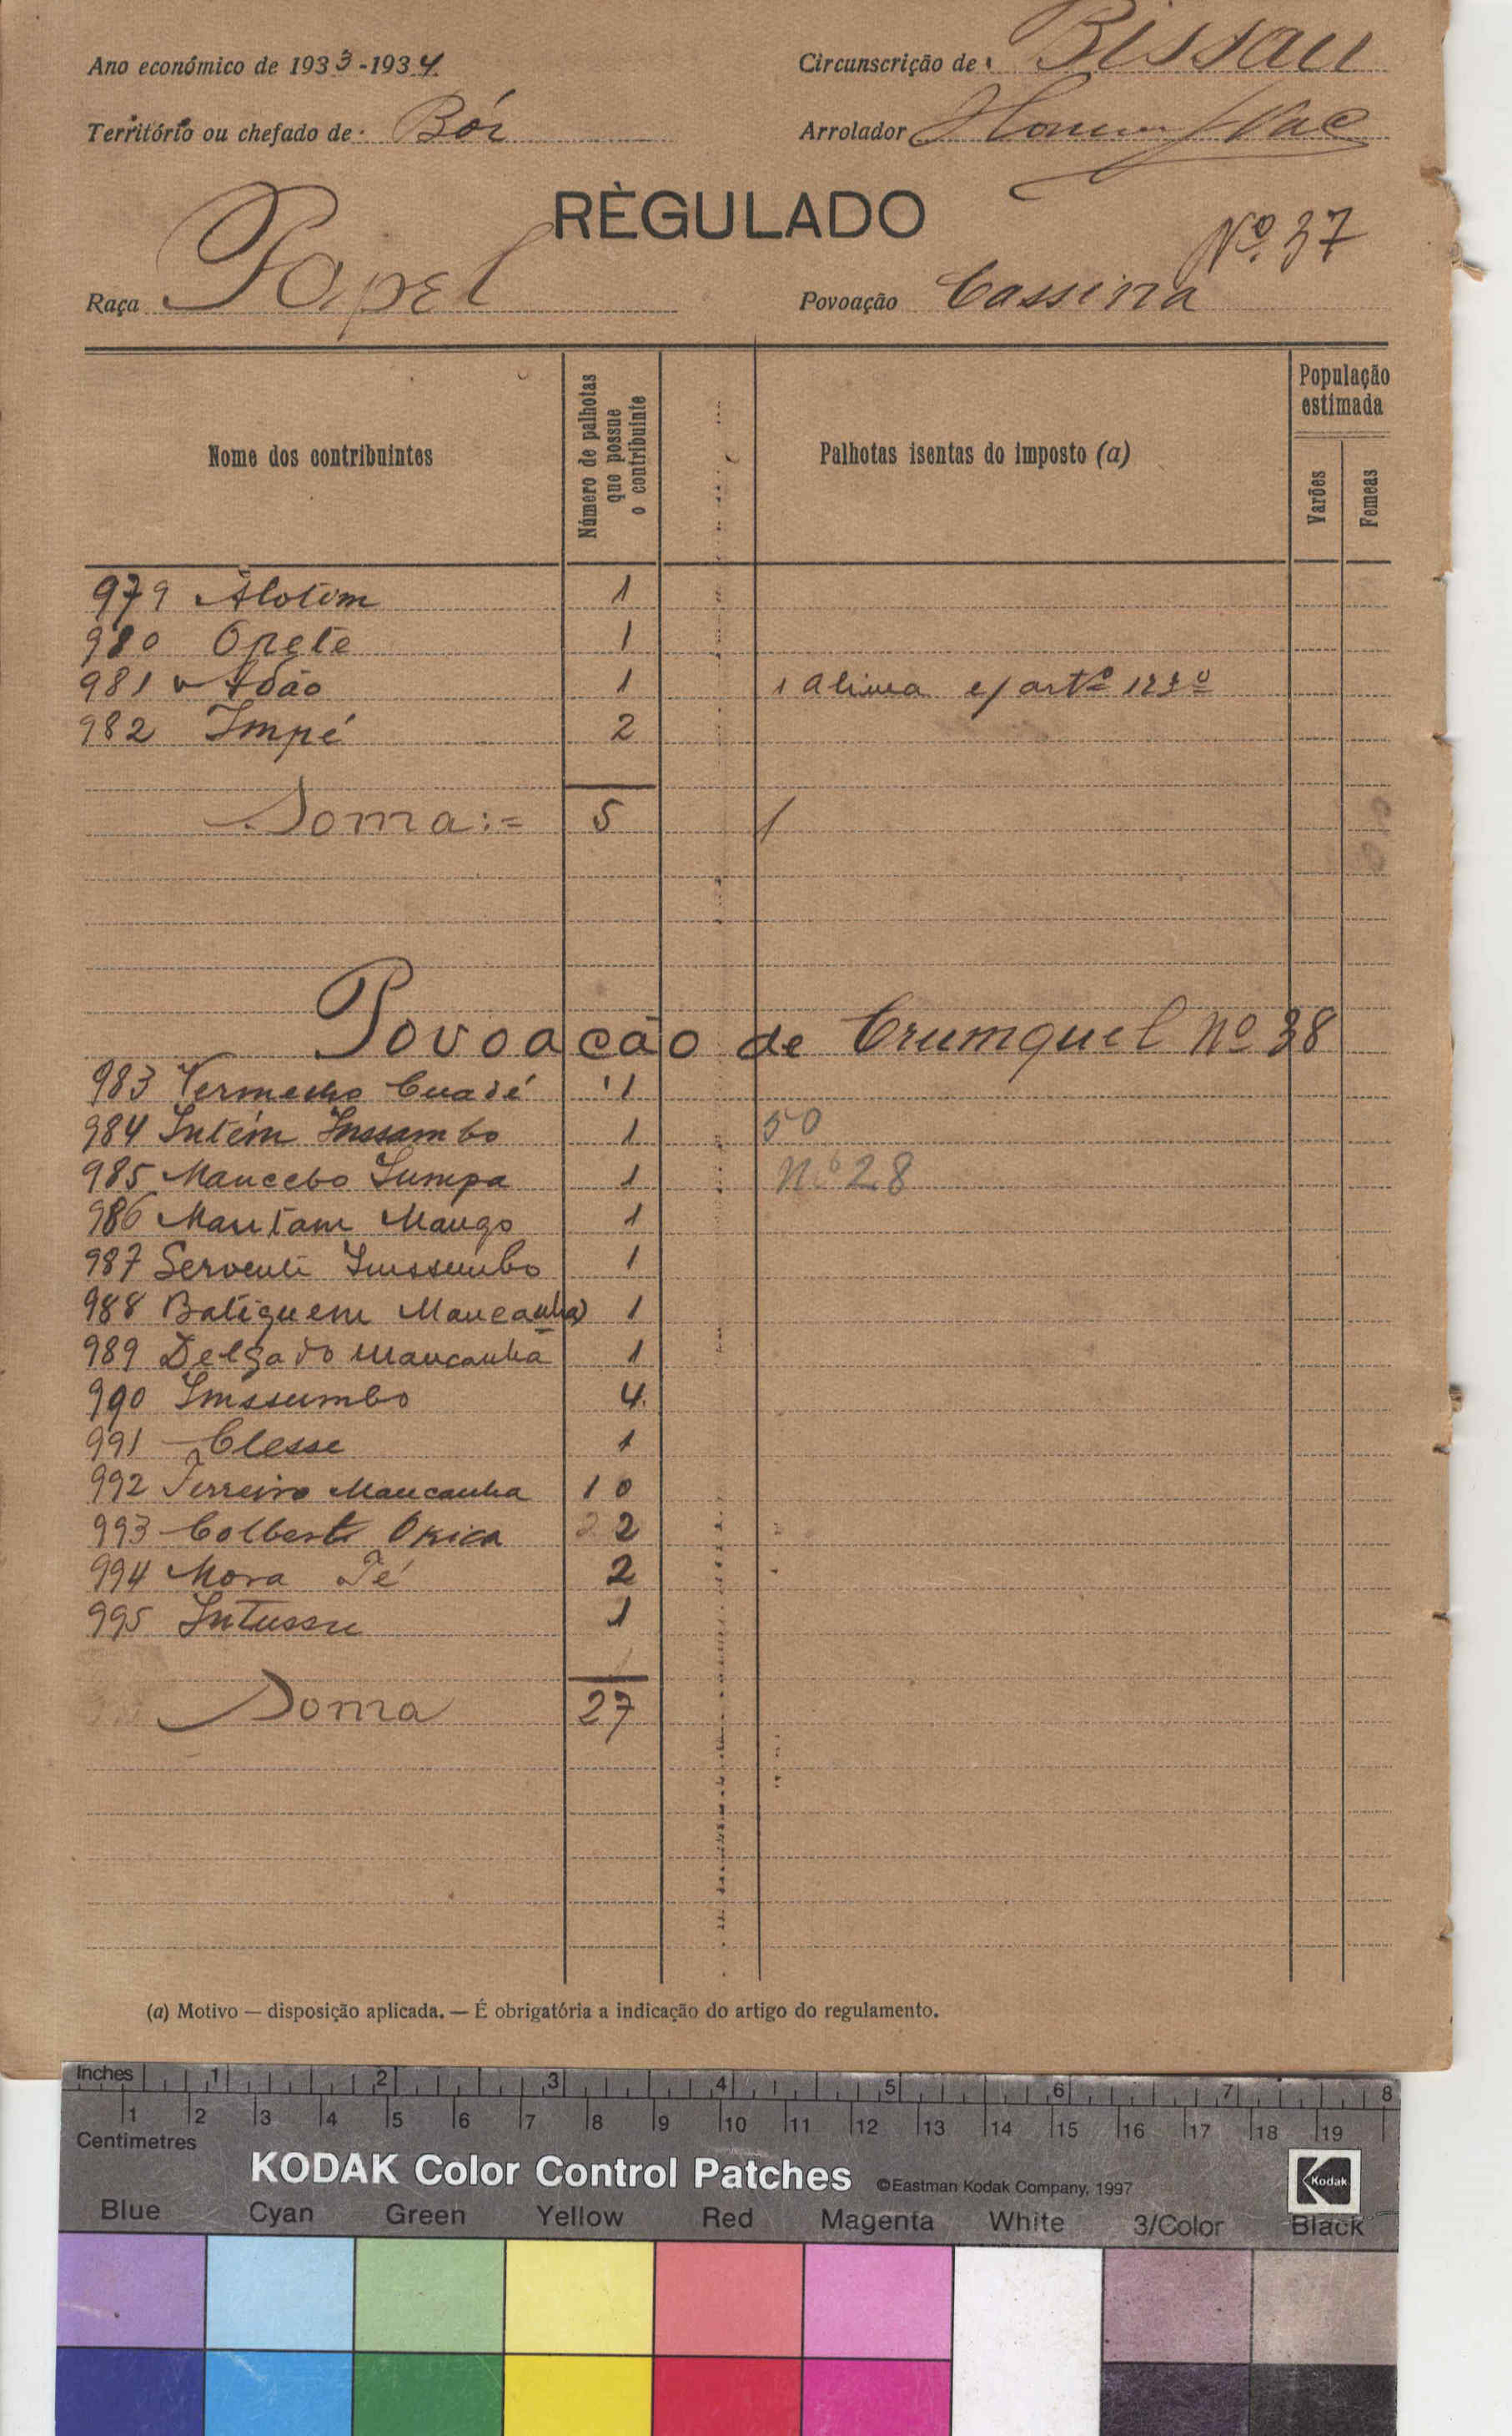 Ano económico de 1933-1934
Circunscrição de Bissau
Território ou chefado de Bór
Arrolador
RÈGULADO
Nº 37
Raça Papel
Povoação Cassina
Nome dos contribuintes
Número de palhotas que possue o contribuinte
Palhotas isentas do imposto (a)
População estimada
Varões
Femeas
979 Alotem 1
980 Opete 1
981 Adão 1 1 alinea e/ artº 123º
982 Impé 2
Soma:= 5 1
Povoacão de Crumquel Nº 38
983 Vermelho Cuadé 1
984 Intém Inssambo 1 50
985 Mancebo Lumpa 1 Nº 28
986 Mantam Mango 1
987 Servente Imssumbo 1
988 Batiquem Mancanha 1
989 Delgado Mancanha 1
990 Imssumbo 4
991 Clesse 1
992 Ferreiro Mancanha 10
993 Colbert Okica 2 2
994 Mora Té 2
995 Intussu 1
Soma 27
(a) Motivo — disposição aplicada. — É obrigatória a indicação do artigo do regulamento.
Inches 1 2 3 4 5 6 7 8
1 2 3 4 5 6 7 8 9 10 11 12 13 14 15 16 17 18 19
Centimetres
KODAK Color Control Patches ©Eastman Kodak Company, 1997 Kodak
Blue Cyan Green Yellow Red Magenta White 3/Color Black